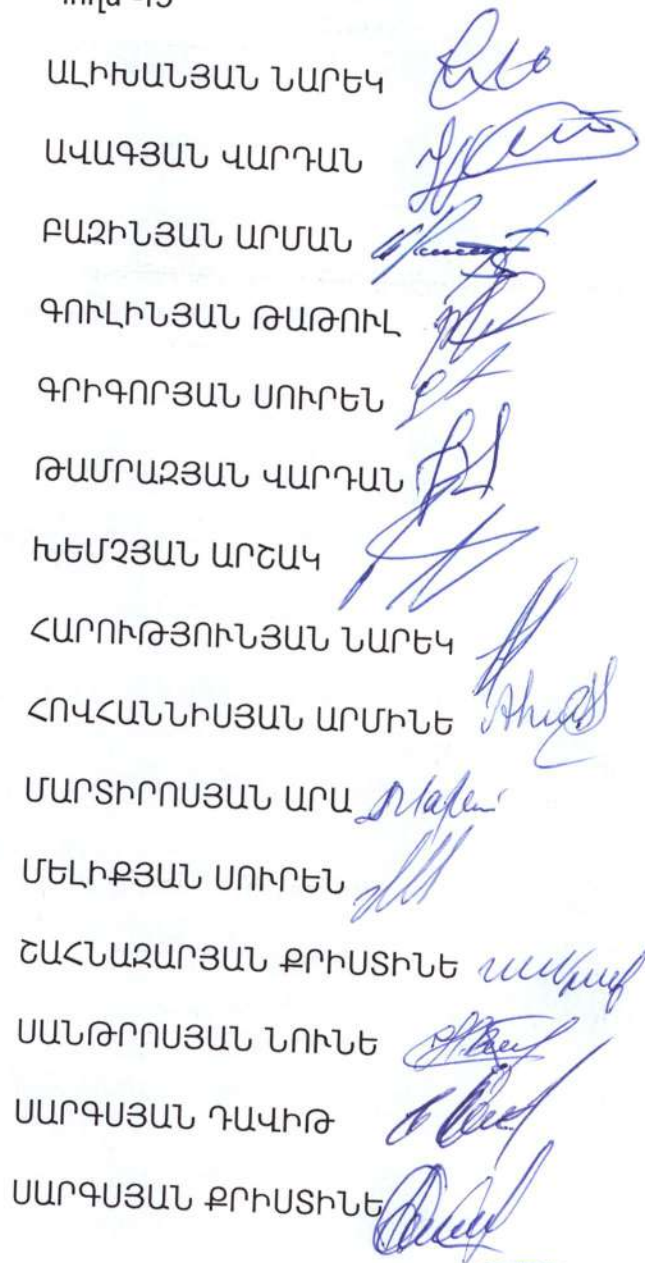 ԱԼԻԽԱՆՅԱՆ ՆԱՐԵԿ
ԱՎԱԳՅԱՆ ՎԱՐԴԱՆ
ԲԱԶԻՆՅԱՆ ԱՐՄԱՆ
ԳՈՒԼԻՆՅԱՆ ԹԱԹՈՒԼ
ԳՐԻԳՈՐՅԱՆ ՍՈՒՐԵՆ
ԹԱՄՐԱԶՅԱՆ ՎԱՐԴԱՆ
ԽԵՄՉՅԱՆ ԱՐՇԱԿ
ՀԱՐՈՒԹՅՈՒՆՅԱՆ ՆԱՐԵԿ
ՀՈՎՀԱՆՆԻՍՅԱՆ ԱՐՄԻՆԵ
ՄԱՐՏԻՐՈՍՅԱՆ ԱՐԱ
ՄԵԼԻՔՅԱՆ ՍՈՒՐԵՆ
ՇԱՀՆԱԶԱՐՅԱՆ ՔՐԻՍՏԻՆԵ
ՍԱՆԹՐՈՍՅԱՆ ՆՈՒՆԵ
ՍԱՐԳՍՅԱՆ ԴԱՎԻԹ
ՍԱՐԳՍՅԱՆ ՔՐԻՍՏԻՆԵ